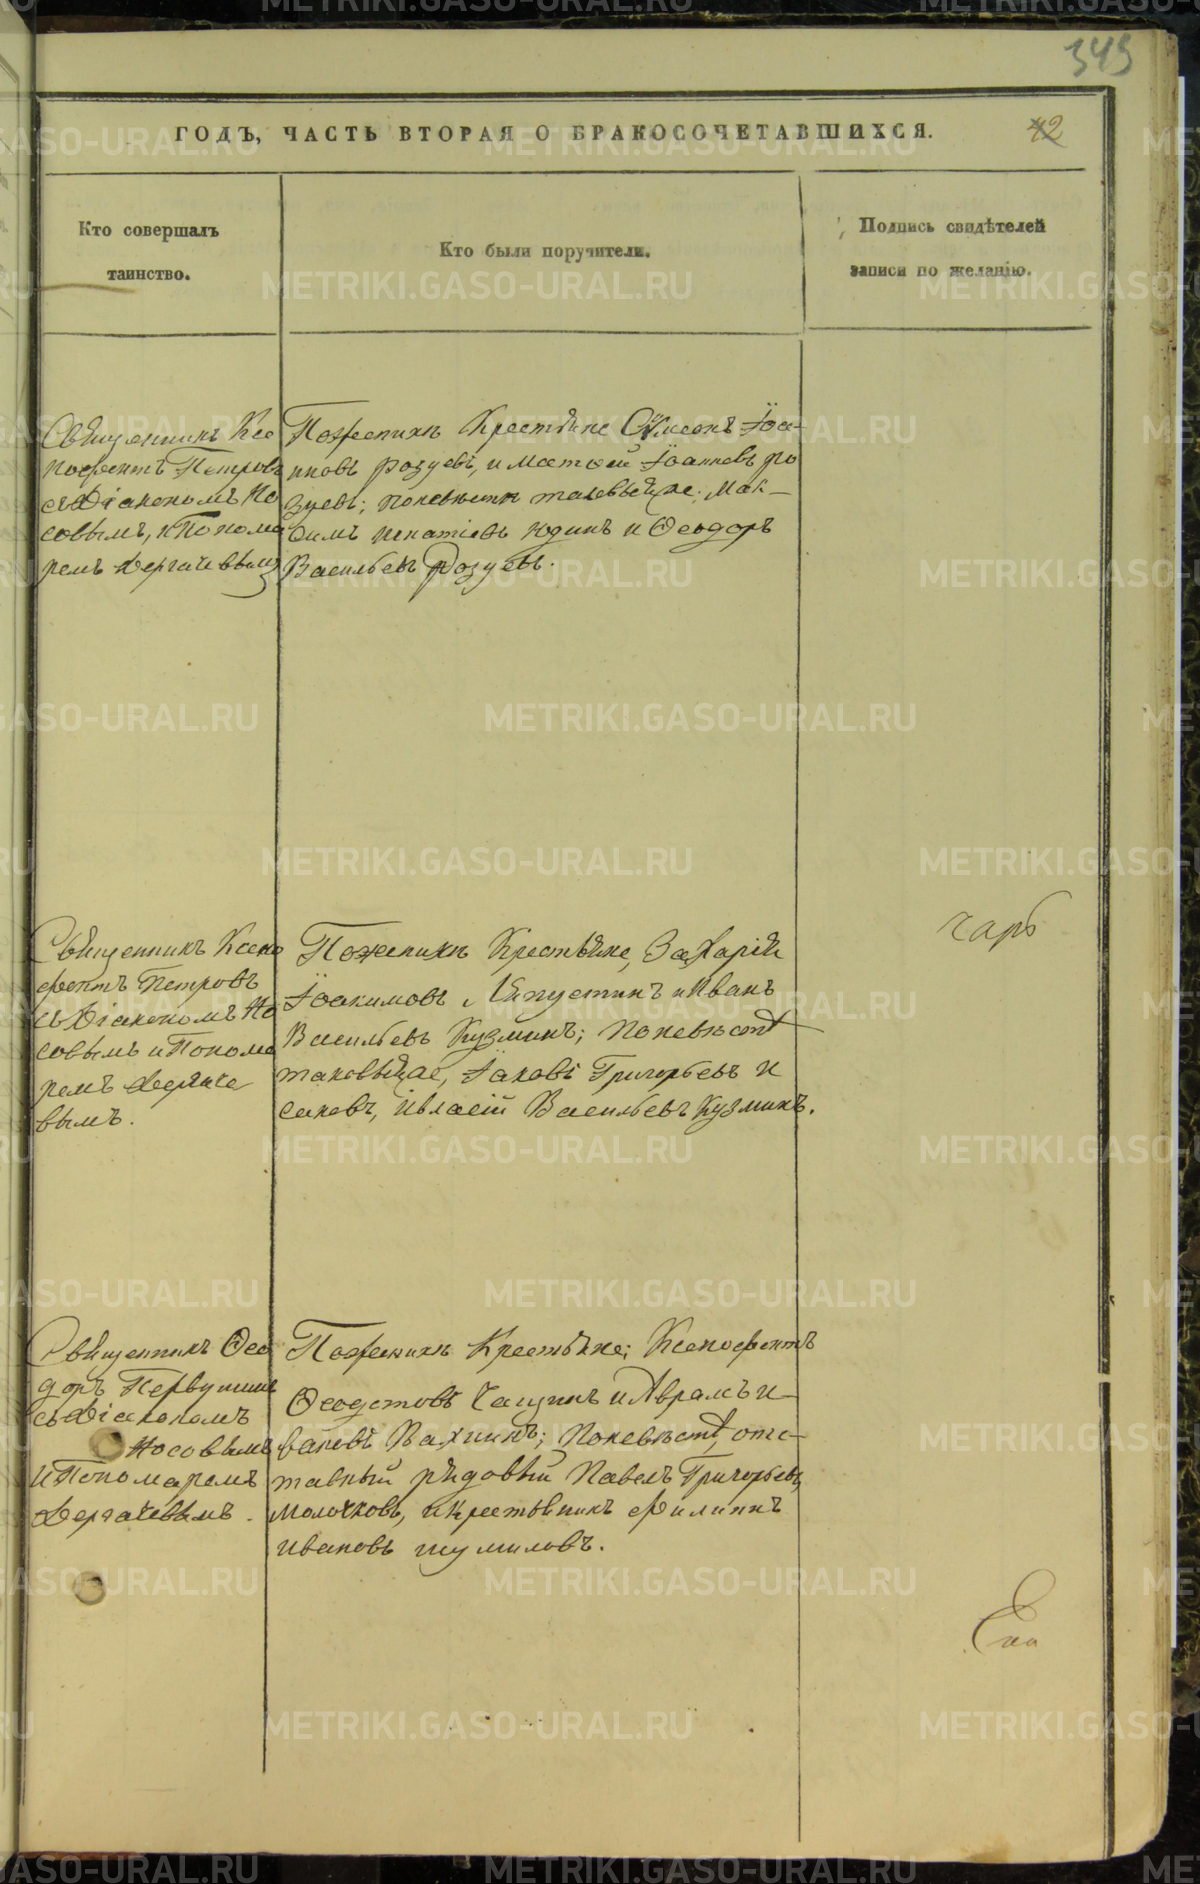 349
ГОДЪ, ЧАСТЬ ВТОРАЯ О БРАКОСОЧЕТАВШИХСЯ.
42
Кто совершалъ
таинство.
Кто были поручители.
Подпись свидѣтелей
записи по желанію.
Священникъ Ксе
нофонтъ Петровъ
съ Діакономъ Но
совымъ, и Понома
ремъ Дергачевымъ
По женихѣ Крестьяне Сѵмеонъ Іоа-
нновъ Розуевъ, и Матѳей Іоанновъ Ро
зуевъ; по невѣстѣ таковыеже: Мак-
симъ Игнатіевъ Юдинъ и Ѳеодоръ
Васильевъ Розуевъ.
Священникъ Ксено
фонтъ Петровъ
съ Діакономъ Но
совымъ и Понома
ремъ Дергаче
вымъ.
По женихѣ Крестьяне, Захарій
Іоакимовъ Лапустинъ и Иванъ
Васильевъ Кузминъ; по невѣстѣ
таковыеже, Іаковъ Григорьевъ И
саковъ, и Власій Васильевъ Кузминъ.
Священникъ Ѳео
доръ Первушинъ
съ Діакономъ
Носовымъ
и Пономаремъ
Дергачевымъ.
По женихѣ Крестьяне; Ксенофонтъ
Ѳеодотовъ Чащинъ и Аврамъ И-
вановъ Вахнинъ; по невѣстѣ, отс-
тавный рядовый Павелъ Григорьевъ
Молочковъ, и крестьянинъ Филиппъ
Ивановъ Шумиловъ.